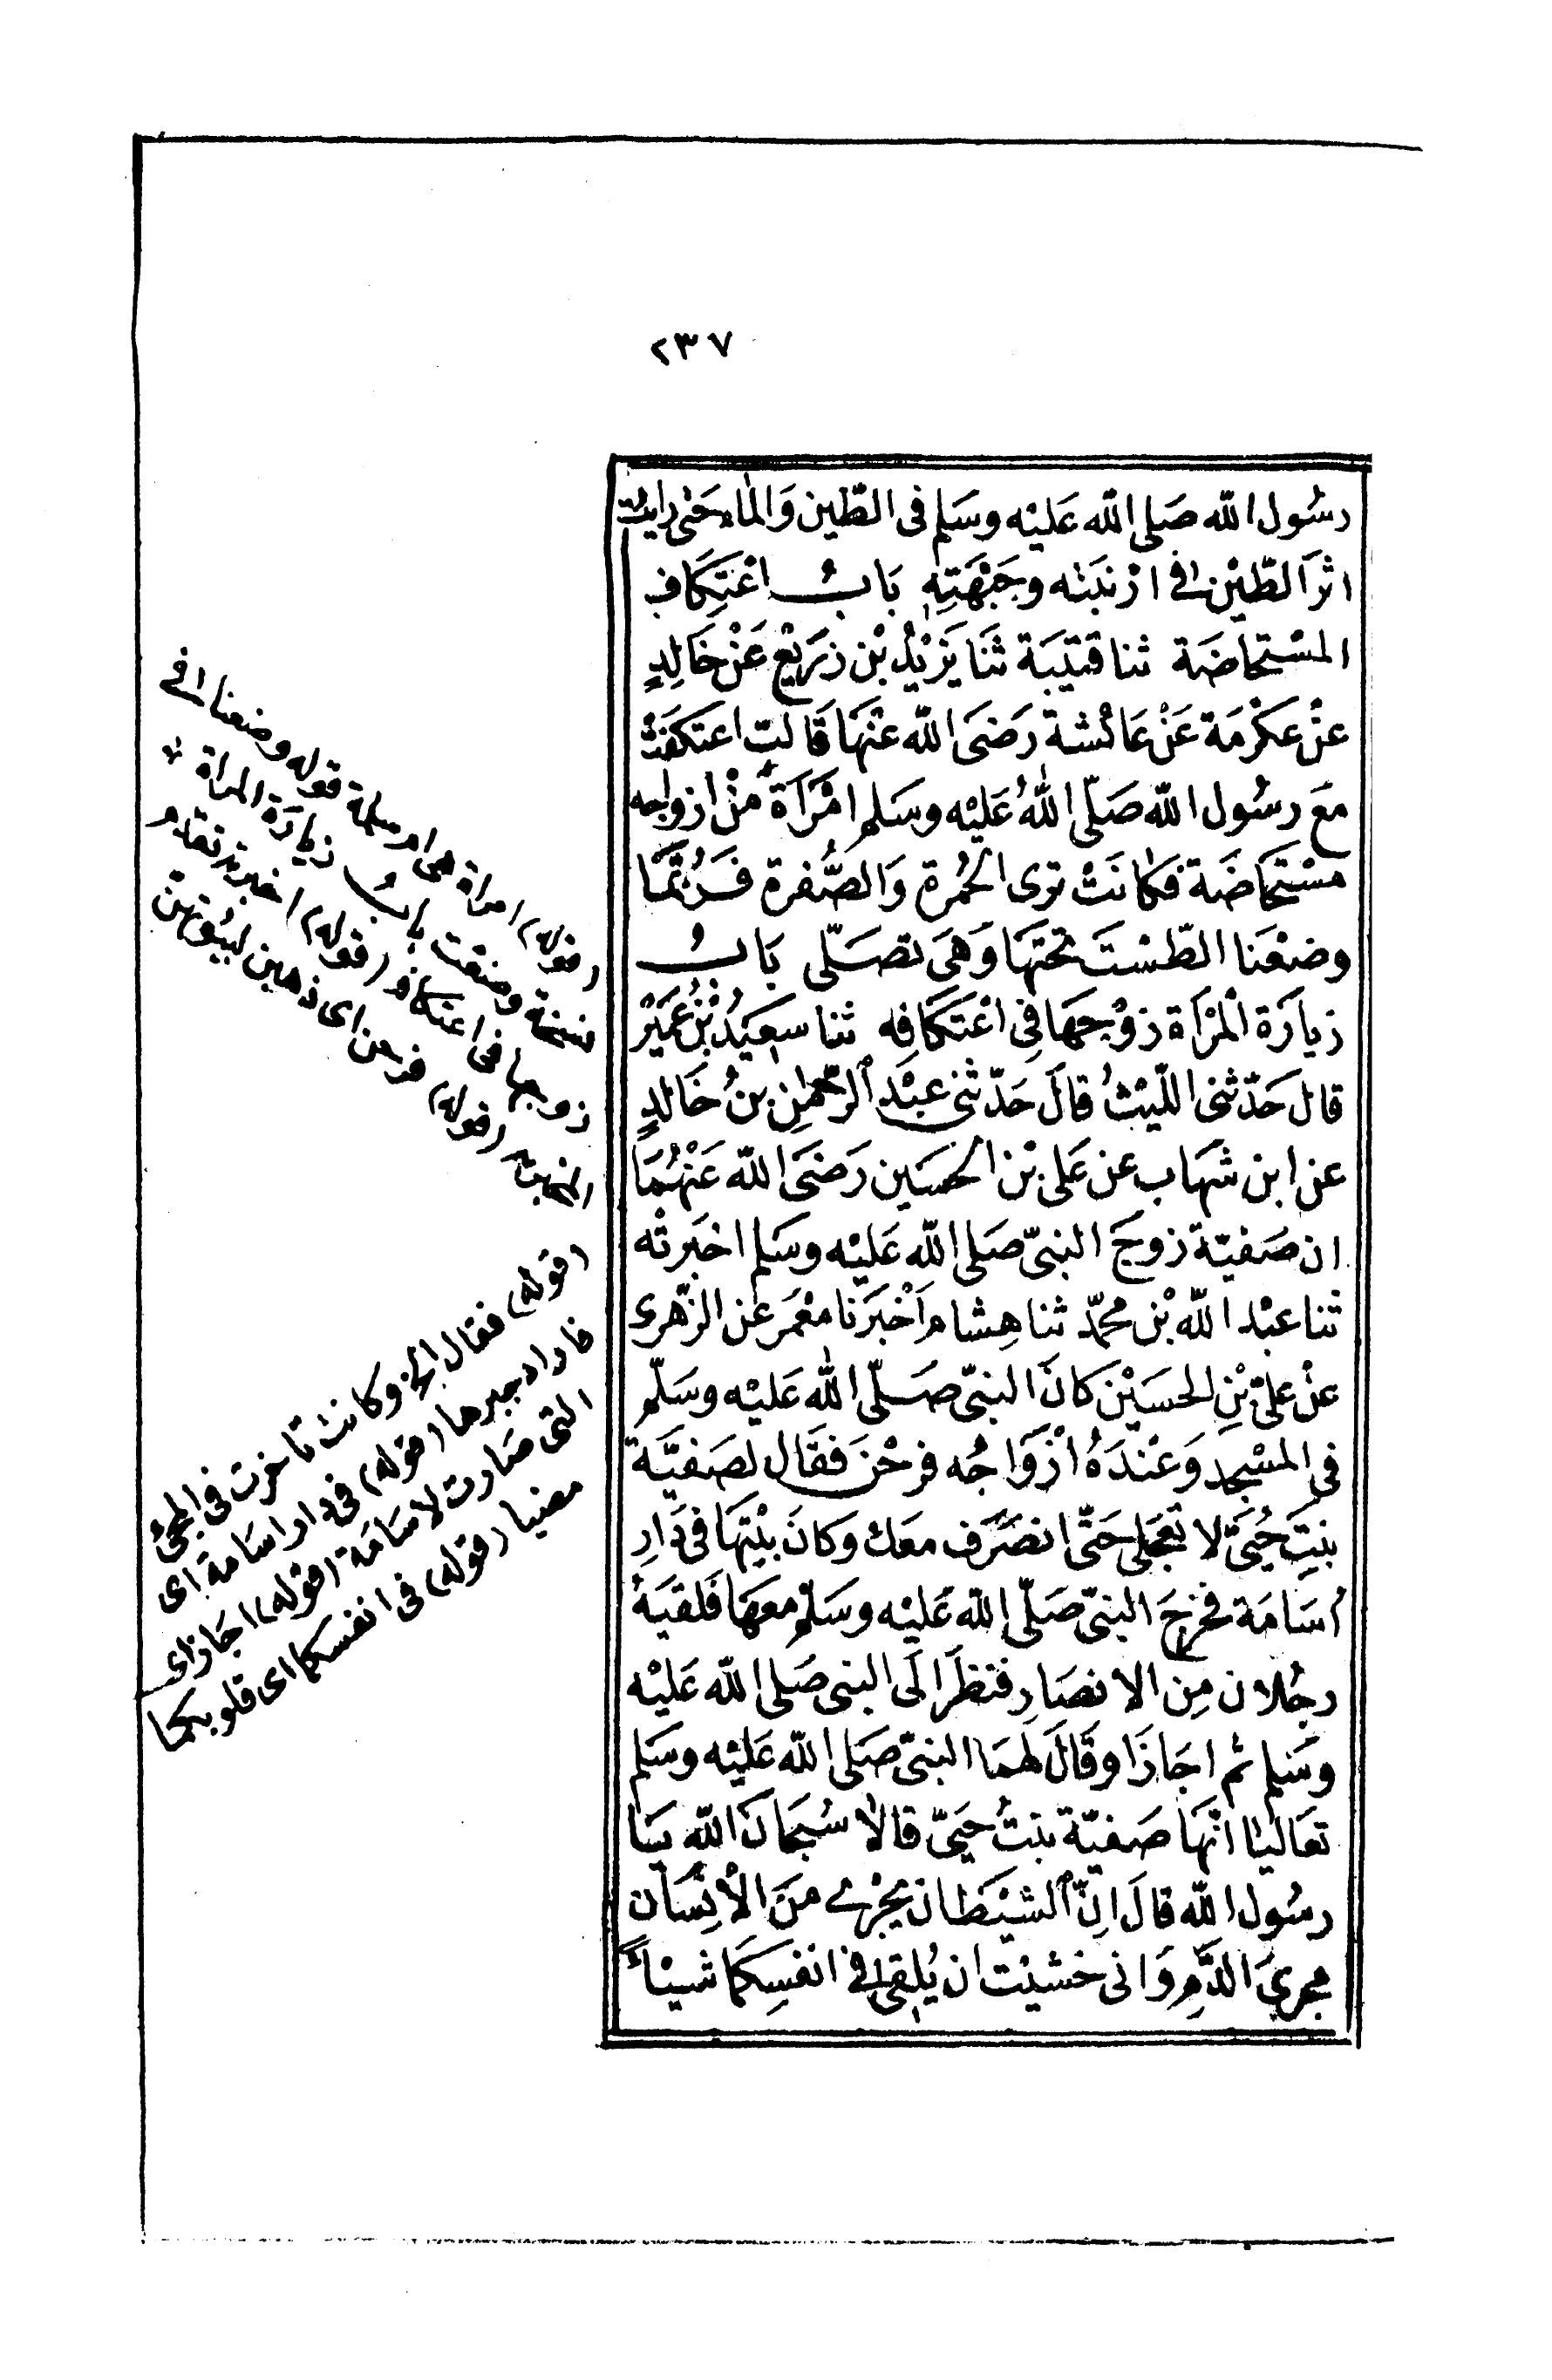 ٢٣٧
رسُول الله صَلى الله عَليْه وسَلم فى الطّين وَالماء حَتى رايت
اثرَ الطّيْن فى ارْنبَته وجَبْهَتِهِ بَابُ اعْتِكَاف
المسْتحاضَة ثنا قتيْبَة ثَنَا يَزيْدُ بْن زرَيْع عَنْ خَالِدٍ
عنْ عكرْمَة عَنْ عَائشة رَضىَ الله عَنْهَا قَالت اعتكفَتْ
مَعَ رسُول الله صَلّى اللهُ عَليْه وسَلم امْرَأة منْ ازواجه
مسْتحَاضَة فكانَتْ ترى الحُمرة وَالصُّفرة فَرُبّمَا
وضعْنَا الطّسْتَ تحْتهَا وَهىَ تصَلّى بَابُ
زيارَة المْرَاة زوْجهَا فِى اعْتكَافِه ثنا سعِيَدُ بْنُ عُمَيْرٍ
قال حَدّثنى الليْثُ قالَ حَدّثنى عبْد الرّحمٰنِ بنُ خَالدٍ
عن ابن شهَاب عن عَلى بْن الحسَين رَضىَ الله عَنْهُمَا
ان صَفيّة زوجَ النبىّ صَلى الله عَليْه وسَلم اخبَرتْه
ثنا عبْد الله بْن محمّد ثنا هِشام اَخْبَرَنا معْمَر عَن الزّهرى
عنْ علىّ بْنِ الحسَيْن كانَ النبىّ صَلّى الله عَليْه وسَلّم
فى المسْجد وَعنْدَهُ ازْوَاجُه فرحْنَ فقَال لصَفيَّة
بنتِ حُيَىّ لا تعْجَلى حَتّى انصَرَف معَك وكانَ بيْتهَا فى دَارِ
أسَامَة فخرجَ النبىّ صَلّى الله عَليْه وسَلّم معهَا فَلقيَهُ
رجُلان مِن الانصَارِ فنظَرَا الَى النبى صَلى الله عَليْه
وسَلم ثم اجَازَا وقَالَ لهمَا النبىّ صَلى الله عَليْه وسَلم
تعَاليَا انّهَا صَفيّة بنتُ حيَىّ قالا سُبحَانَ الله يَا
رسُول الله قالَ اِنّ الشيْطَان يجْرى مِنَ الْانِسَان
مجرىَ الدَّمِ وَانى خشيْت ان يُلقى فى انفسِكمَا شيْئاً
(قوله) امراة هى ام سلمة قوله وضعنا فى
نسخة وضعت بابُ زيارة المراة
زوجها فى اعتكافه (قوله) اخبرته تقدم
(قوله) فرحن اى ذهبن لبيُوتهن
(قوله) فقال الخ وكانت تاخرت فى المجئ
فاراد جبرها (قوله) فى دار اسامة اى
التى صَارت لاسَامَة (قوله) اجَازا اى
مضيا (قوله) فى انفسكما اى قلوبكما